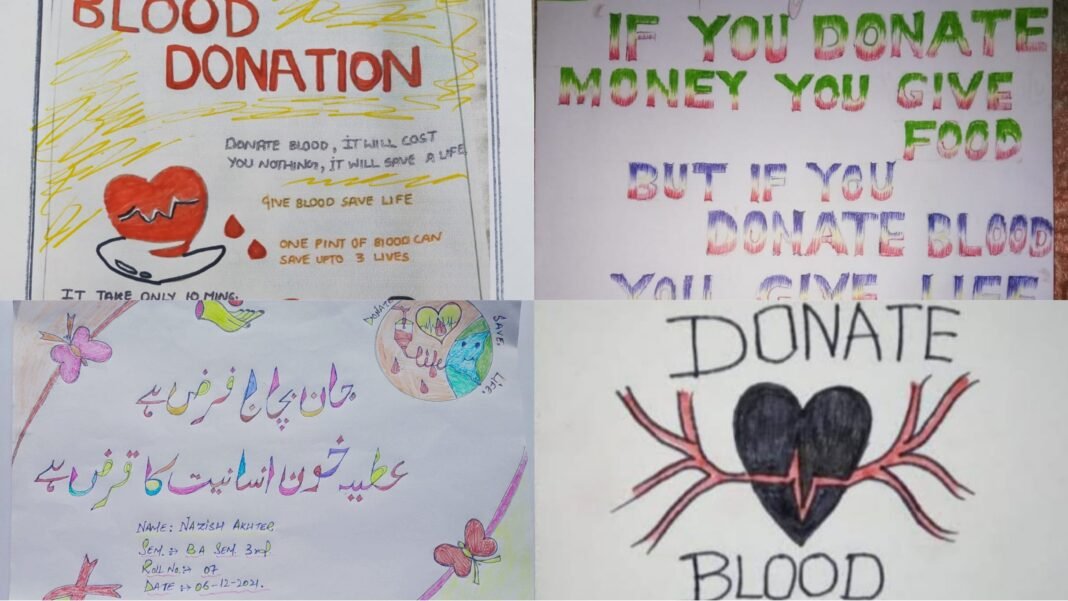 BLOOD
DONATION
DONATE BLOOD, IT WILL COST
YOU NOTHING, IT WILL SAVE A LIFE
GIVE BLOOD SAVE LIFE
ONE PINT OF BLOOD CAN
SAVE UPTO 3 LIVES
IT TAKE ONLY 10 MINS.
IF YOU DONATE
MONEY YOU GIVE
FOOD
BUT IF YOU
DONATE BLOOD
YOU GIVE LIFE
DONATE
SAVE
LIFE.
life
جان بچانا فرض ہے
عطیہ خون انسانیت کا قرض ہے
NAME: NAZISH AKHTER
SEM :→ BA SEM 3rd
ROLL NO :→ 07
DATE :→ 06-12-2021.
DONATE
BLOOD